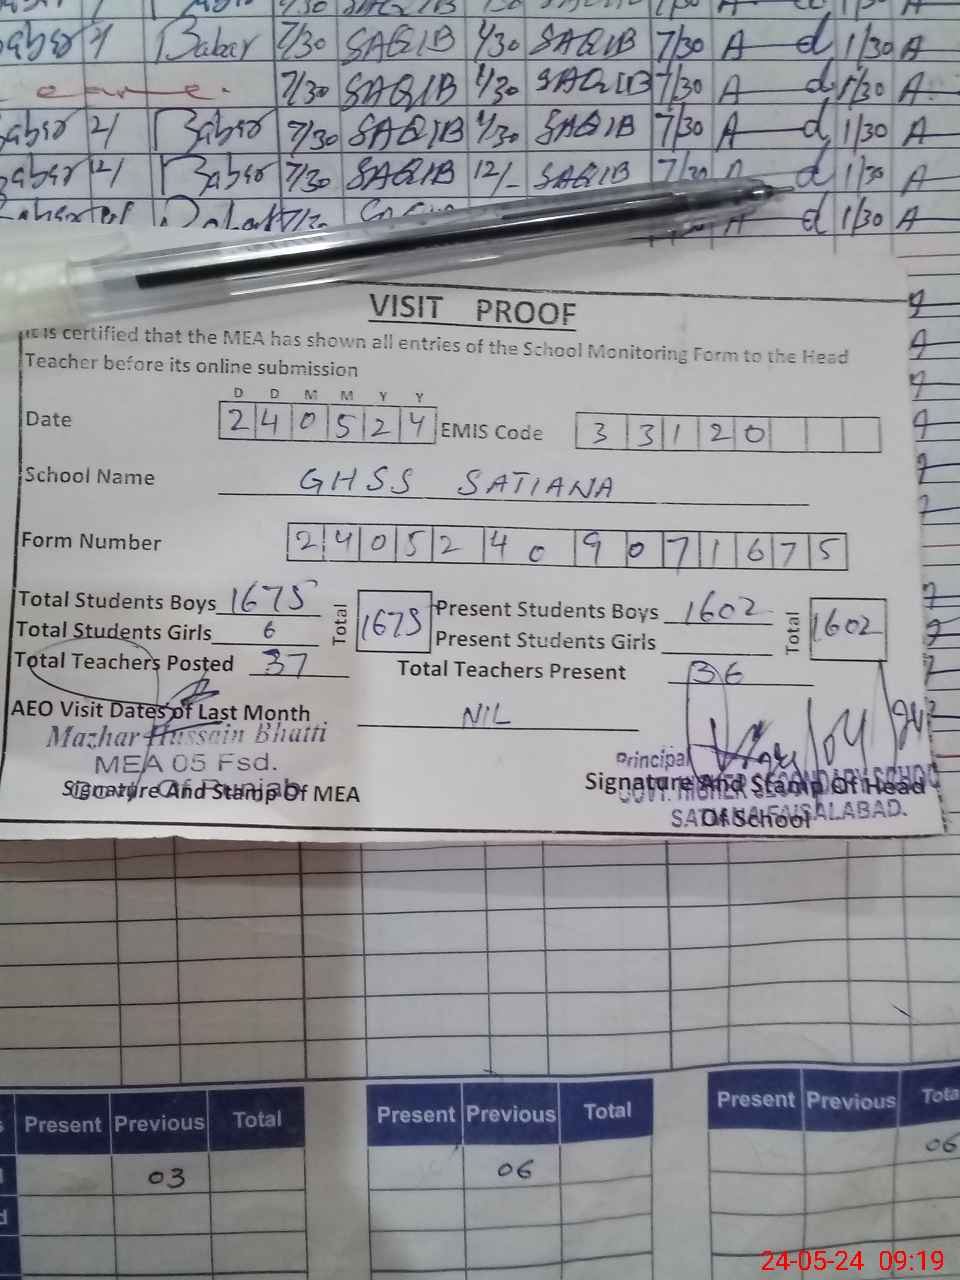 Babar 7/30 SAQIB 7/30 SAQIB 7/30 A d 1/30 A
7/30 SAQIB 7/30 SAQIB 7/30 A d 1/30 A
Baber 7/30 SAQIB 7/30 SAQIB 7/30 A d 1/30 A
Baber 7/30 SAQIB 12/- SAQIB 7/30 A d 1/30 A
A d 1/30 A
VISIT PROOF
It is certified that the MEA has shown all entries of the School Monitoring Form to the Head
Teacher before its online submission
D D M M Y Y
Date 2 4 0 5 2 4 EMIS Code 3 3 1 2 0
School Name GHSS SATIANA
Form Number 2 4 0 5 2 4 0 9 0 7 1 6 7 5
Total Students Boys 1675 Total 1675 Present Students Boys 1602 Total 1602
Total Students Girls 6 Present Students Girls
Total Teachers Posted 37 Total Teachers Present 36
AEO Visit Dates of Last Month NIL
Mazhar Hussain Bhatti
MEA 05 Fsd.
Signature And Stamp Of MEA
Principal
Signature And Stamp Of Head
Of School
Present Previous Total Present Previous Total Present Previous Tota
03 06 06
24-05-24 09:19